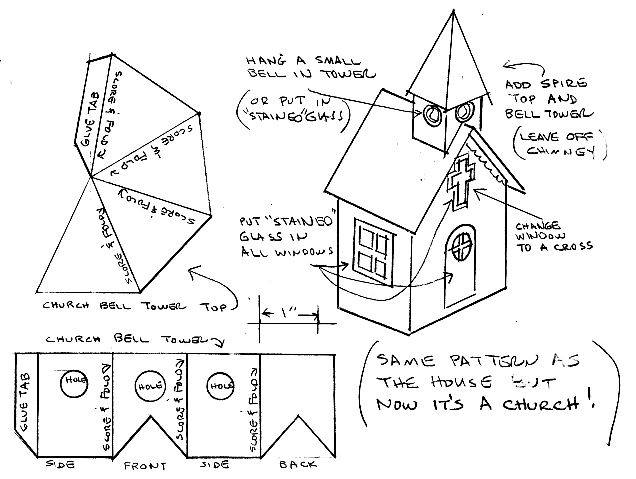 HANG A SMALL
BELL IN TOWER
(OR PUT IN
"STAINED" GLASS)
ADD SPIRE
TOP AND
BELL TOWER
(LEAVE OFF
CHIMNEY)
GLUE TAB
SCORE & FOLD
SCORE & FOLD
SCORE & FOLD
SCORE & FOLD
CHURCH BELL TOWER TOP
PUT "STAINED"
GLASS IN
ALL WINDOWS
CHANGE
WINDOW
TO A CROSS
1"
CHURCH BELL TOWER
GLUE TAB
HOLE
SCORE & FOLD
HOLE
SCORE & FOLD
HOLE
SCORE & FOLD
SIDE
FRONT
SIDE
BACK
(SAME PATTERN AS
THE HOUSE BUT
NOW IT'S A CHURCH!)